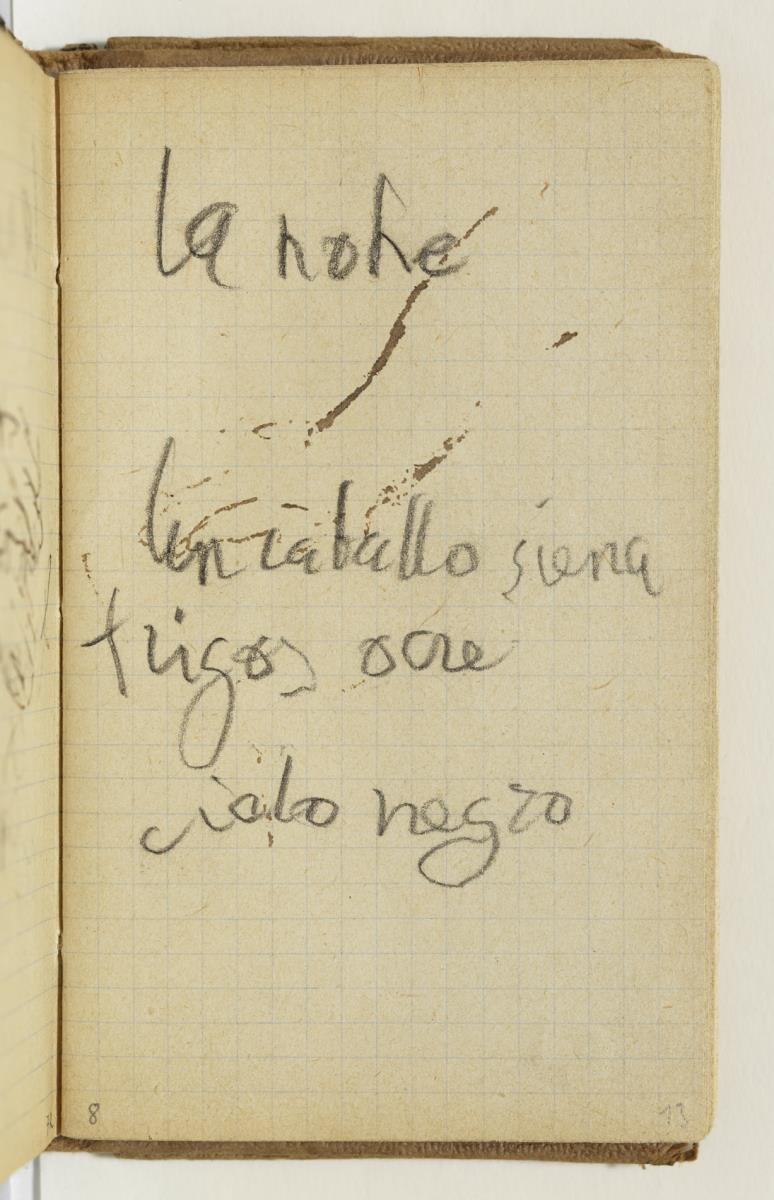 la nohe
Un caballo siena
trigos ocre
cielo negro
8 13